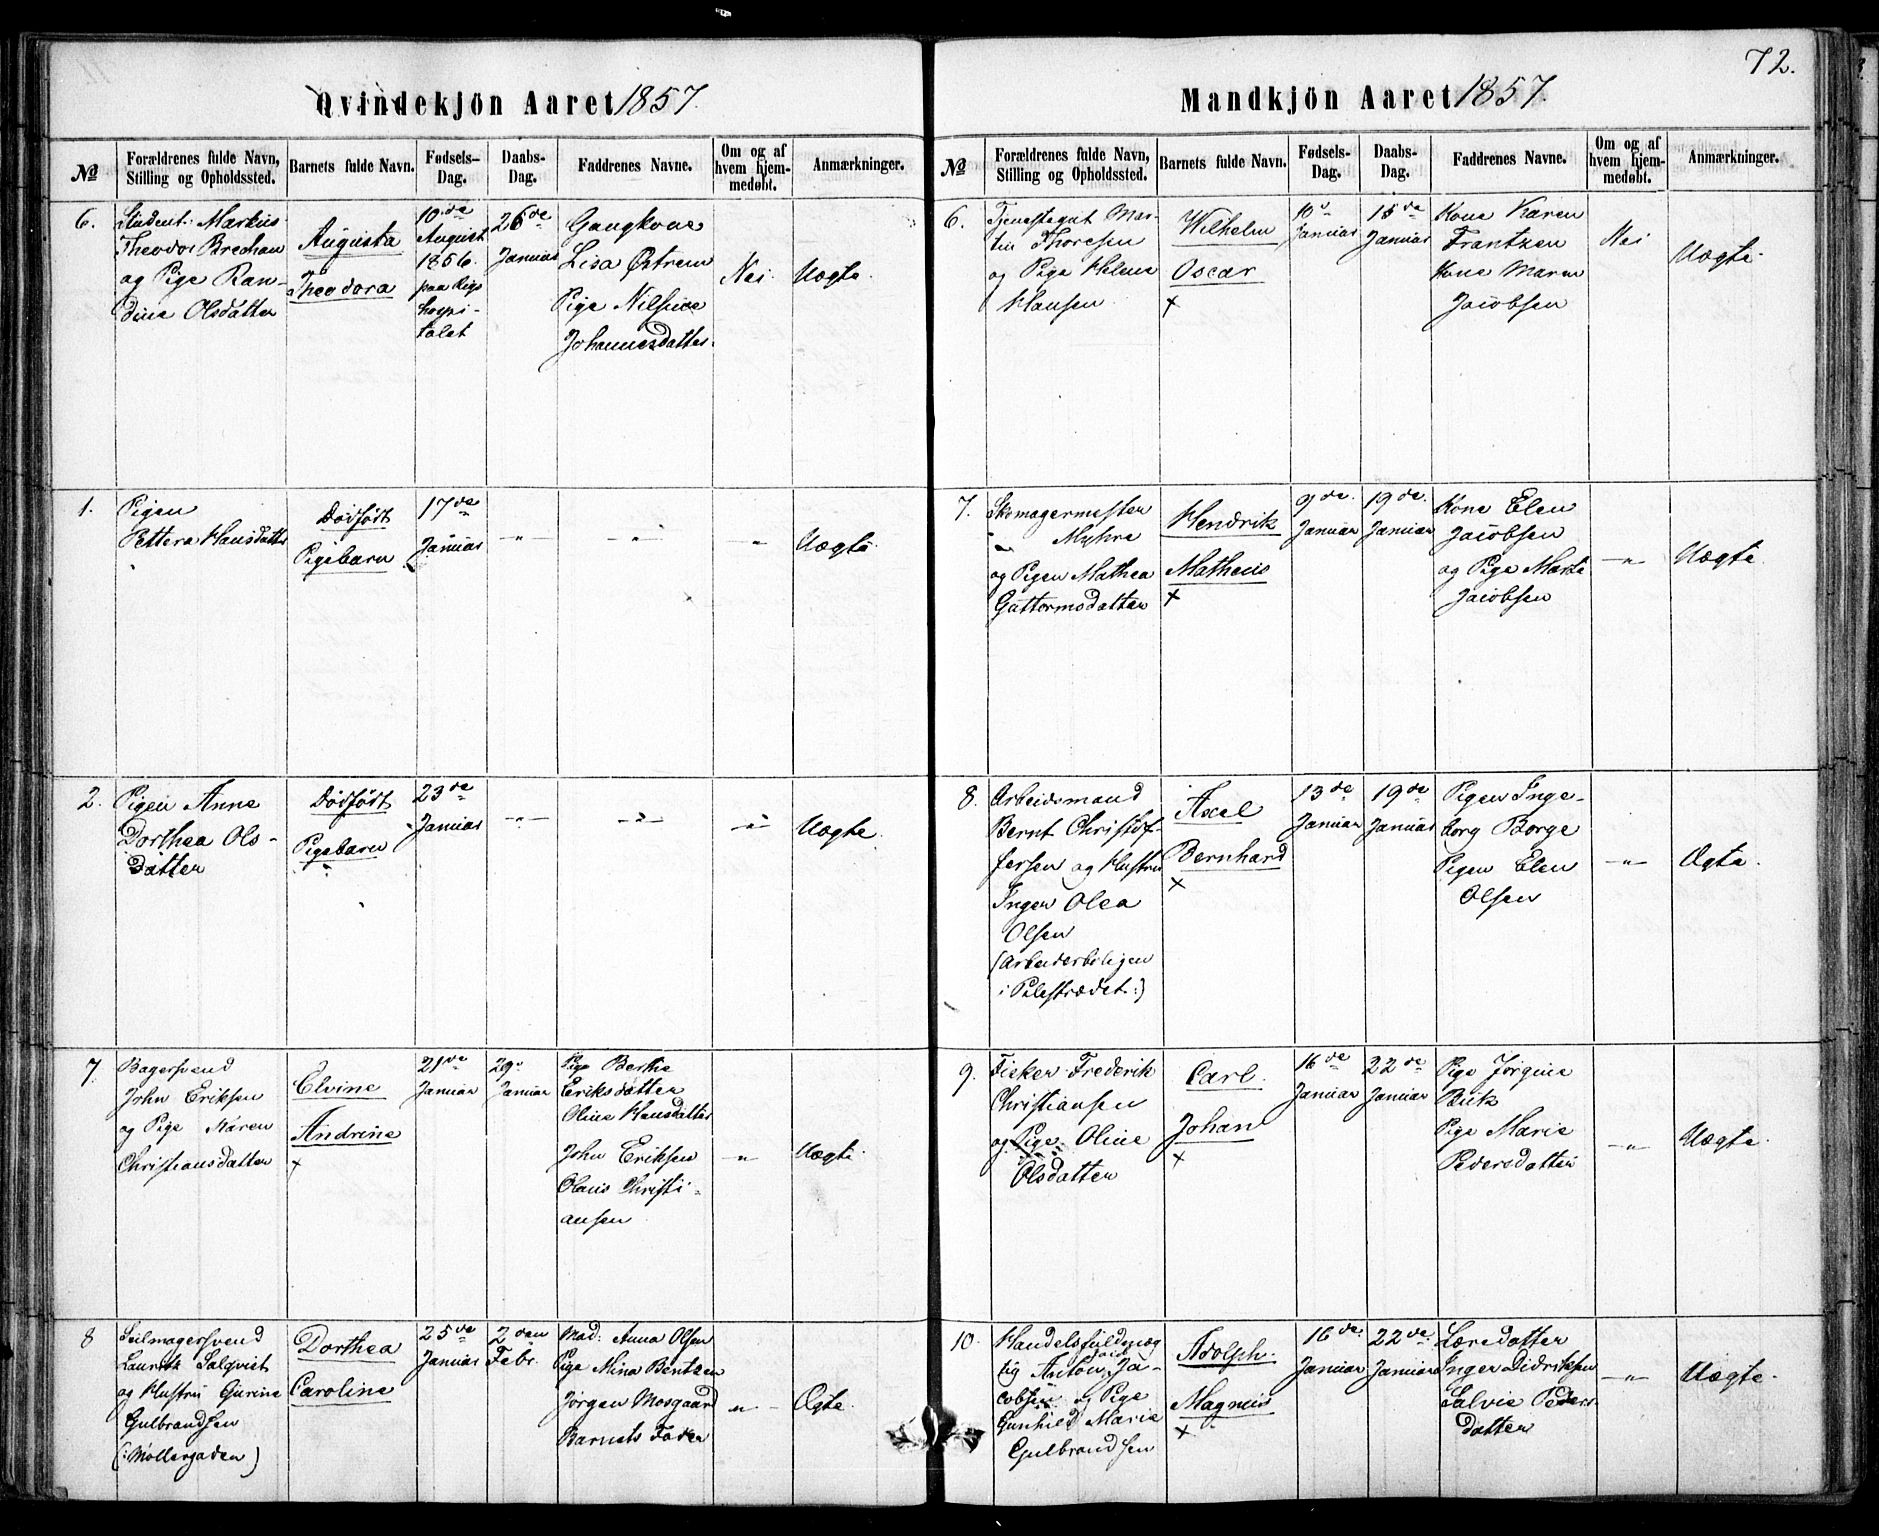 Qvindekjön Aaret 1857.
№
Forældrenes fulde Navn,
Stilling og Opholdssted.
Barnets fulde Navn.
Fødsels-
Dag.
Daabs-
Dag.
Faddrenes Navne.
Om og af
hvem hjem-
medøbt.
Anmærkninger.
6.
Student: Markus
Theodor Brechan
og Pige Ran-
dine Olsdatter
Augusta
Theodora
10de
August
1856.
paa Rigs
hospi-
talet
26de
Januar
Gangkone
Lisa Østrem
Pige Nilsine
Johannesdatter.
Nei.
Uægte.
1.
Pigen
Pettera Hansdatter
Dødfødt
Pigebarn
17de
Januar
-"-
-"-
-"-
Uægte.
2.
Pigen Anne
Dorthea Ols-
datter
Dødfødt
Pigebarn
23de
Januar
-"-
-"-
-"-
Uægte.
7.
Bagersvend
John Eriksen
og Pige Karen
Christiansdatter
Elvine
Andrine
×
21de
Januar
29de
Januar
Pige Berthe
Eriksdatter
Oline Hansdatter
John Eriksen
Olaus Christi-
ansen
-"-
Uægte.
8
Seilmagersvend
Lauritz Salqvist
og Hustru Gurine
Gulbrandsen
(:Møllergaden)
Dorthea
Caroline
25de
Januar
2den
Febr.
Mad: Anna Olsen
Pige Mina Bentzen
Jørgen Mosgaard
Barnets Fader
-"-
Ægte.
72.
Mandkjön Aaret 1857.
№
Forældrenes fulde Navn,
Stilling og Opholdssted.
Barnets fulde Navn.
Fødsels-
Dag.
Daabs-
Dag.
Faddrenes Navne.
Om og af
hvem hjem-
medøbt.
Anmærkninger.
6.
Tjenestegut Mar-
tin Thoresen
og Pige Helene
Hansen
Wilhelm
Oscar
×
10de
Januar
15de
Januar
Kone Karen
Frantzen
Kone Maren
Jacobsen
Nei
Uægte.
7.
Skomagermester
Myhre
og Pigen Mathea
Guttormsdatter
Hendrik
Matheus
×
9de.
Januar
19de.
Januar
Kone Elen
Jacobsen
og Pige Marte
Jacobsen
-"-
Uægte.
8.
Arbeidsmand
Bernt Christof-
fersen og Hustru
Inger Olea
Olsen
(Arbeiderboligen
i Pilestrædet:)
Axel
Bernhard
×
13de
Januar
19de
Januar
Pigen Inge-
borg Borge
Pigen Elen
Olsen
-"-
Ægte.
9.
Fisker Frederik
Christiansen
og Pige Oline
Olsdatter
Carl.
Johan
×
16de
Januar
22de
Januar
Pige Jørgine
Buk
Pige Marie
Pedersdatter
-"-
Uægte.
10.
Handelsfuldmæg
tig Anton Ja-
cobsen og Pige
Gunhild Marie
Gulbrandsen
Adolph.
Magnus
×
16de.
Januar
22de.
Januar
Læredatter
Inger Didriksen
Salvie Peders
datter
-"-
Uægte.